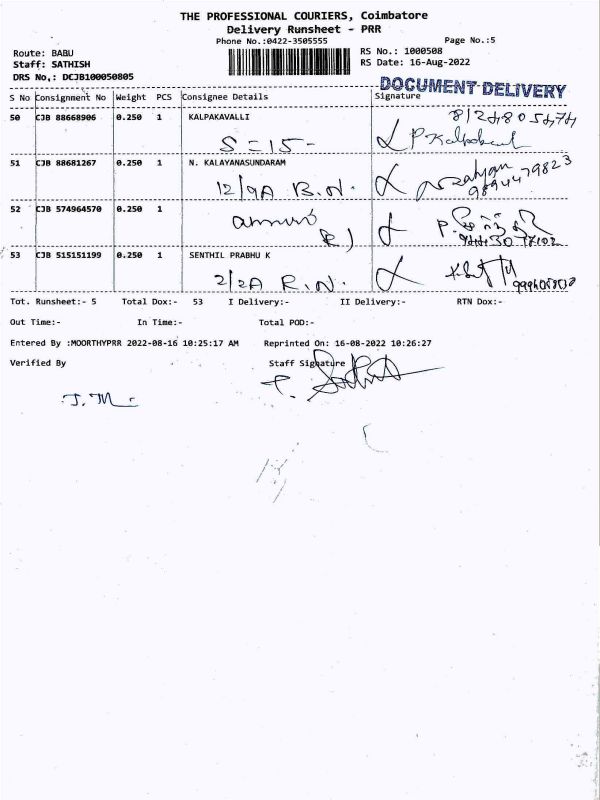 THE PROFESSIONAL COURIERS, Coimbatore
Delivery Runsheet - PRR
Phone No.:0422-3505555 Page No.:5
Route: BABU RS No.: 1000508
Staff: SATHISH RS Date: 16-Aug-2022
DRS No,: DCJB100050805
DOCUMENT DELIVERY
S No Consignment No Weight PCS Consignee Details Signature
50 CJB 88668906 0.250 1 KALPAKAVALLI
S = 15 -
51 CJB 88681267 0.250 1 N. KALAYANASUNDARAM
12/9A R.N. 9894479823
52 CJB 574964570 0.250 1
53 CJB 515151199 0.250 1 SENTHIL PRABHU K
2/2A R.N.
Tot. Runsheet:- 5 Total Dox:- 53 I Delivery:- II Delivery:- RTN Dox:-
Out Time:- In Time:- Total POD:-
Entered By :MOORTHYPRR 2022-08-16 10:25:17 AM Reprinted On: 16-08-2022 10:26:27
Verified By Staff Signature
J. M.